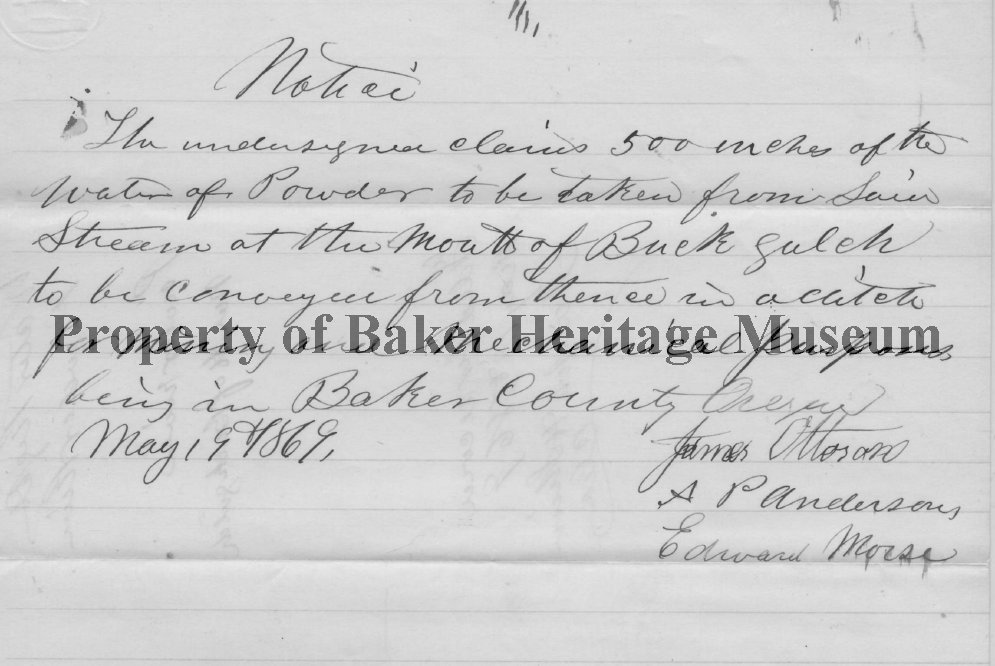 Notice
The undersigned claims 500 inches of the
Water of Powder to be taken from Said
Stream at the Mouth of Buck gulch
to be conveyed from thence in a ditch
Property of Baker Heritage Museum
for mining and Mechanical purposes
being in Baker County Oregon
May 19th 1869,
James Ottoson
A P Anderson
Edward Morse